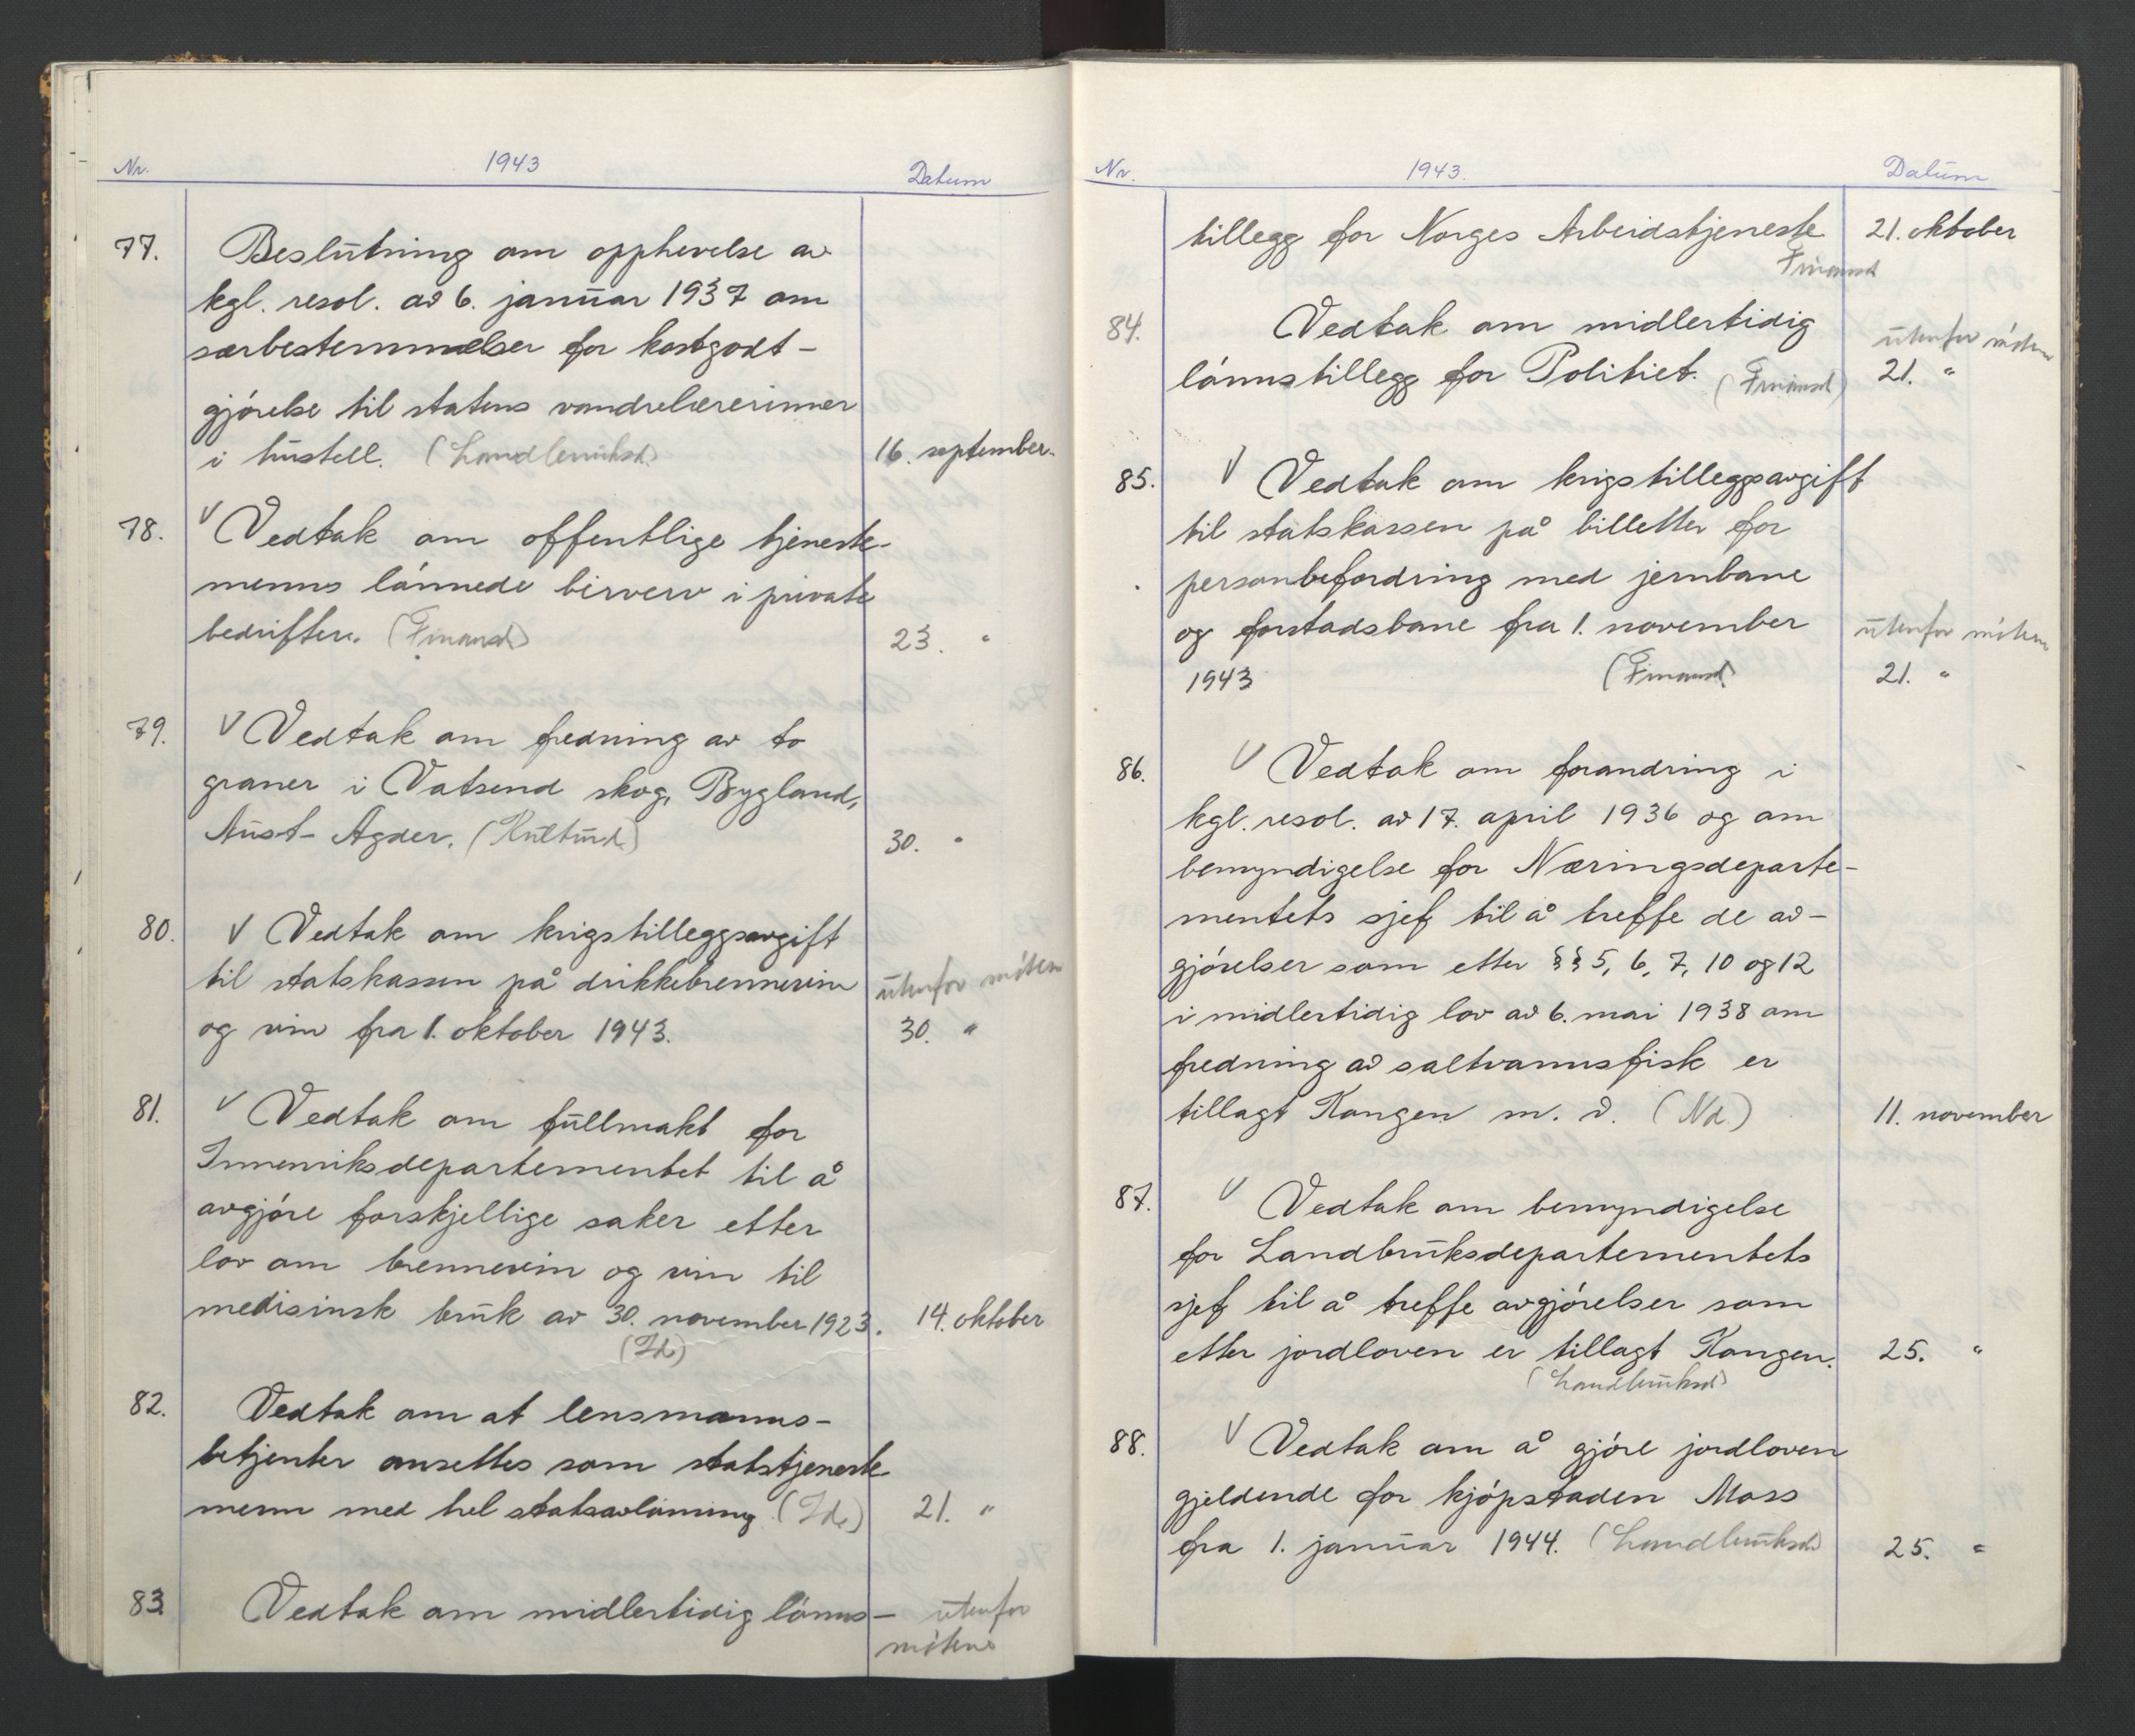 Nr. 1943 Datum
77. Beslutning om opphevelse av
kgl. resol. av 6. januar 1937 om
særbestemmelser for kostgodt-
gjórelse til statens vandrelærerinner
i hústell. (Landbruksd.) 16. september.
78. V Vedtak om offentlige tjeneste-
menns lónnede birverv i private
bedrifter. (Finansd.) 23. "
79. V Vedtak om fredning av to
graner i Vatsend skog, Bygland,
Aust-Agder. (Kulturd.) 30. "
80. V Vedtak om krigstilleggsavgift
til statskassen på drikkebrennevin utenfor móten
og vin fra 1. oktober 1943. 30. "
81. V Vedtak om fullmakt for
Innenriksdepartementet til å
avgjóre forskjellige saker etter
lov om brennevin og vin til
medisinsk bruk av 30. november 1923. 14. oktober
(Id.)
82. Vedtak om at lensmanns-
betjenter ansettes som statstjeneste
menn med hel statsavlónning (Id.) 21. "
83. Vedtak om midlertidig lónns- utenfor
mótene
Nr. 1943. Datum
tillegg for Norges Arbeidstjeneste 21. oktober
Finansd
84. Vedtak om midlertidig utenfor móten
lónnstillegg for Politiet. (Finansd) 21. "
85. V Vedtak om krigstilleggsavgift
til statskassen på billetter for
personbefordring med jernbane
og forstadsbane fra 1. november utenfor móten
1943 (Finansd) 21. "
86. V Vedtak om forandring i
kgl. resol. av 17. april 1936 og om
bemyndigelse for Næringsdeparte-
mentets sjef til å treffe de av-
gjórelser som etter §§ 5, 6, 7, 10 og 12
i midlertidig lov av 6. mai 1938 om
fredning av saltvannsfisk er
tillagt Kongen m. v. (Nd.) 11. november
87. V Vedtak om bemyndigelse
for Landbruksdepartementets
sjef til å treffe avgjórelser som
etter jordloven er tillagt Kongen. 25. "
(Landbruksd)
88. V Vedtak om å gjóre jordloven
gjeldende for kjópstaden Moss
fra 1. januar 1944. (Landbruksd) 25. "